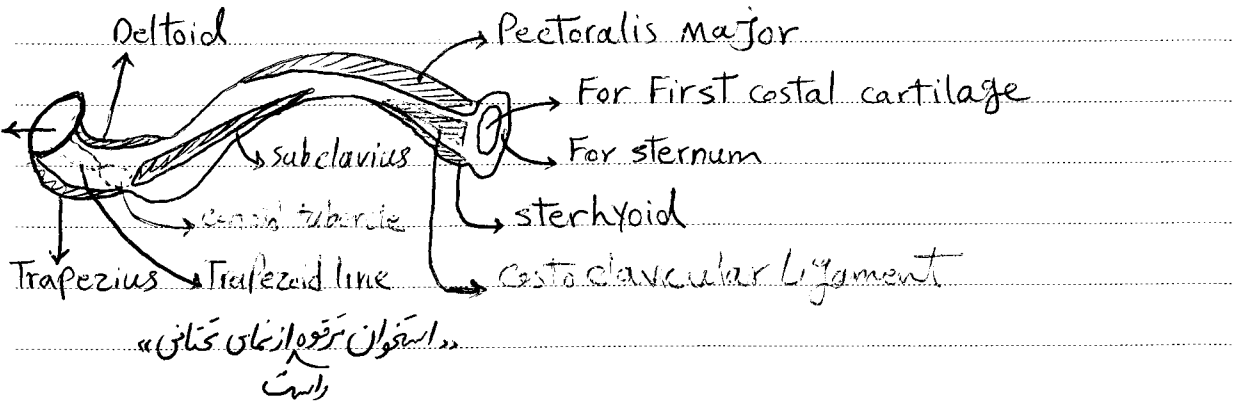 Deltoid
Pectoralis Major
For First costal cartilage
For sternum
subclavius
conoid tubercle
sterhyoid
Trapezius
Trapezoid line
Costoclavicular Ligament
«استخوان ترقوه از نمای تحتانی»
راست